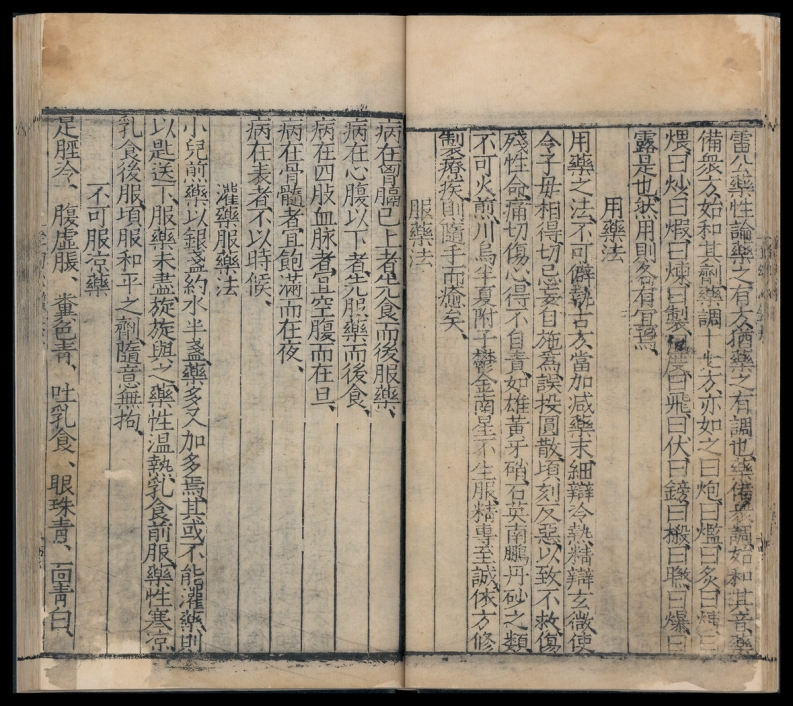 雷公藥性論藥之有方猶藥之有調也藥備衆調始和其音藥
備衆方始和其劑藥調十七方亦如之曰炮曰爁曰炙曰
煨曰炒曰煅曰煉曰製曰度曰飛曰伏曰鎊曰摋曰㬠曰爆曰
露是也然用則各有宜焉
用藥法
用藥之法不可僻執古方當加減藥末細辯冷熱精辯玄微使
令子母相得切忌妄自施為誤投圓散頃刻反惡以致不救傷
殘性命痛切傷心得不自責如雄黃牙硝石英南鵬丹砂之類
不可火煎川烏半夏附子鬱金南星不生服精專至誠依方修
製療疾則隨手而癒矣
服藥法
病在胷膈已上者先食而後服藥、
病在心腹以下者先服藥而後食、
病在四肢血脉者宜空腹而在旦、
病在骨髓者宜飽滿而在夜、
病在表者不以時候、
灌藥服藥法
小兒煎藥以銀盞約水半盞藥多又加多焉其或不能灌藥則
以匙送下服藥未盡旋旋與之藥性温熱乳食前服藥性寒凉
乳食後服頃服和平之劑隨意無拘、
不可服凉藥
足脛冷、腹虛脹、糞色青、吐乳食、眼珠青、面青白、